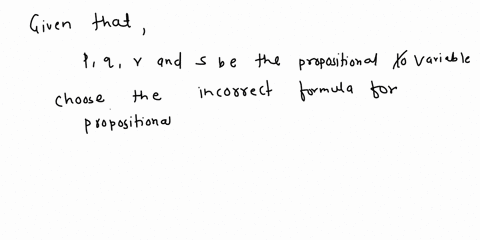 Given that,
p, q, r and s be the propositional variable
choose the incorrect formula for
propositional